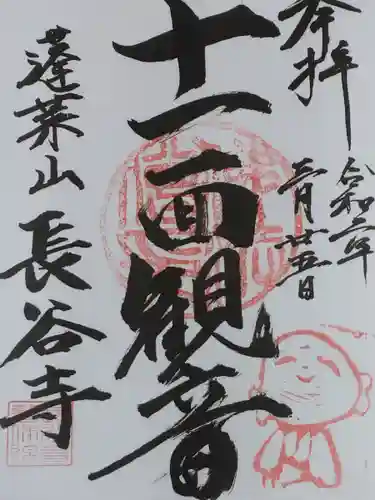 奉拝
令和二年
二月廿五日
十一面観音
蓬莱山長谷寺